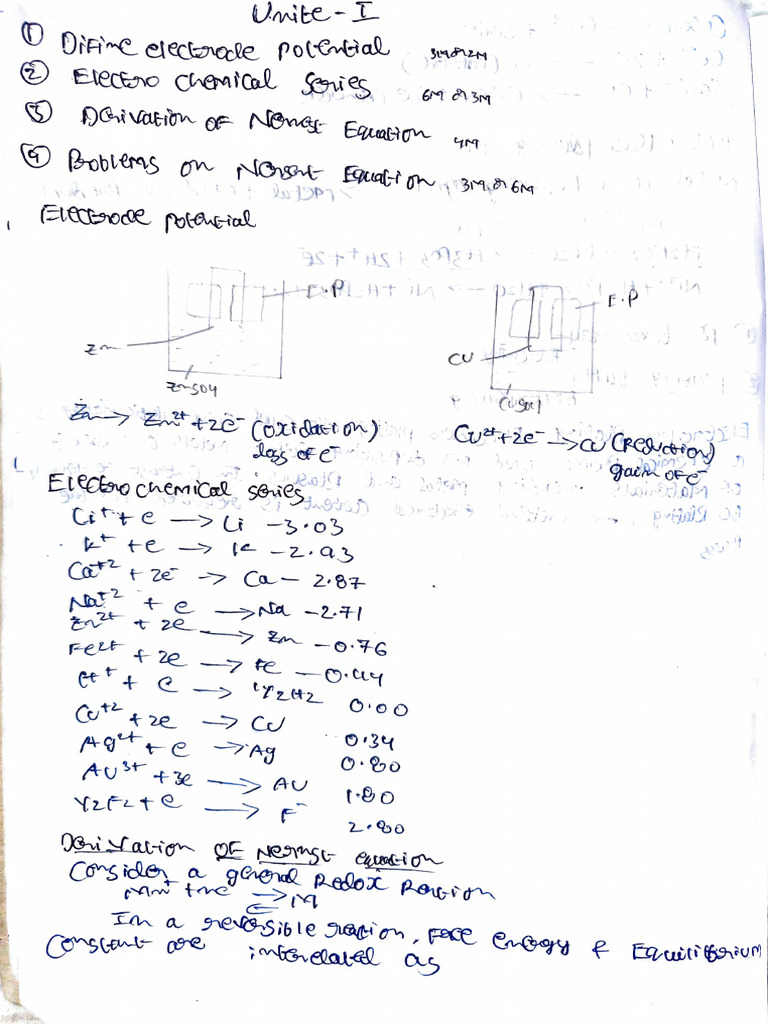 Unite - I
① Difine electrode potential 3M or 2M
② Electro chemical series 6M or 3M
③ Derivation of Nernest Equation 4M
④ Problems on Nersent Equation, 3M or 6M
Electrode potential
E.P
Zn
ZnSO4
E.P
CU
CuSO4
Zn → Zn²⁺ + 2e⁻ (Oxidation)
loss of e⁻
Cu²⁺ + 2e⁻ → CU (Reduction)
gain of e⁻
Electro chemical series
Li⁺ + e → Li -3.03
K⁺ + e → K -2.93
Ca⁺² + 2e⁻ → Ca - 2.87
Na⁺² + e → Na -2.71
Zn²⁺ + 2e → Zn -0.76
Fe²⁺ + 2e → Fe -0.44
H⁺ + e → 1/2H2 0.00
Cu⁺² + 2e → CU 0.34
Ag²⁺ + e → Ag 0.80
AU³⁺ + 3e → AU 1.80
1/2F2 + e → F⁻ 2.80
Derivation OF Nernst equation
Consider a general Redox Reation
Mn⁺ + ne ⇌ M
In a reversible reation, Free energy & Equilibrium
Constent are interelated as